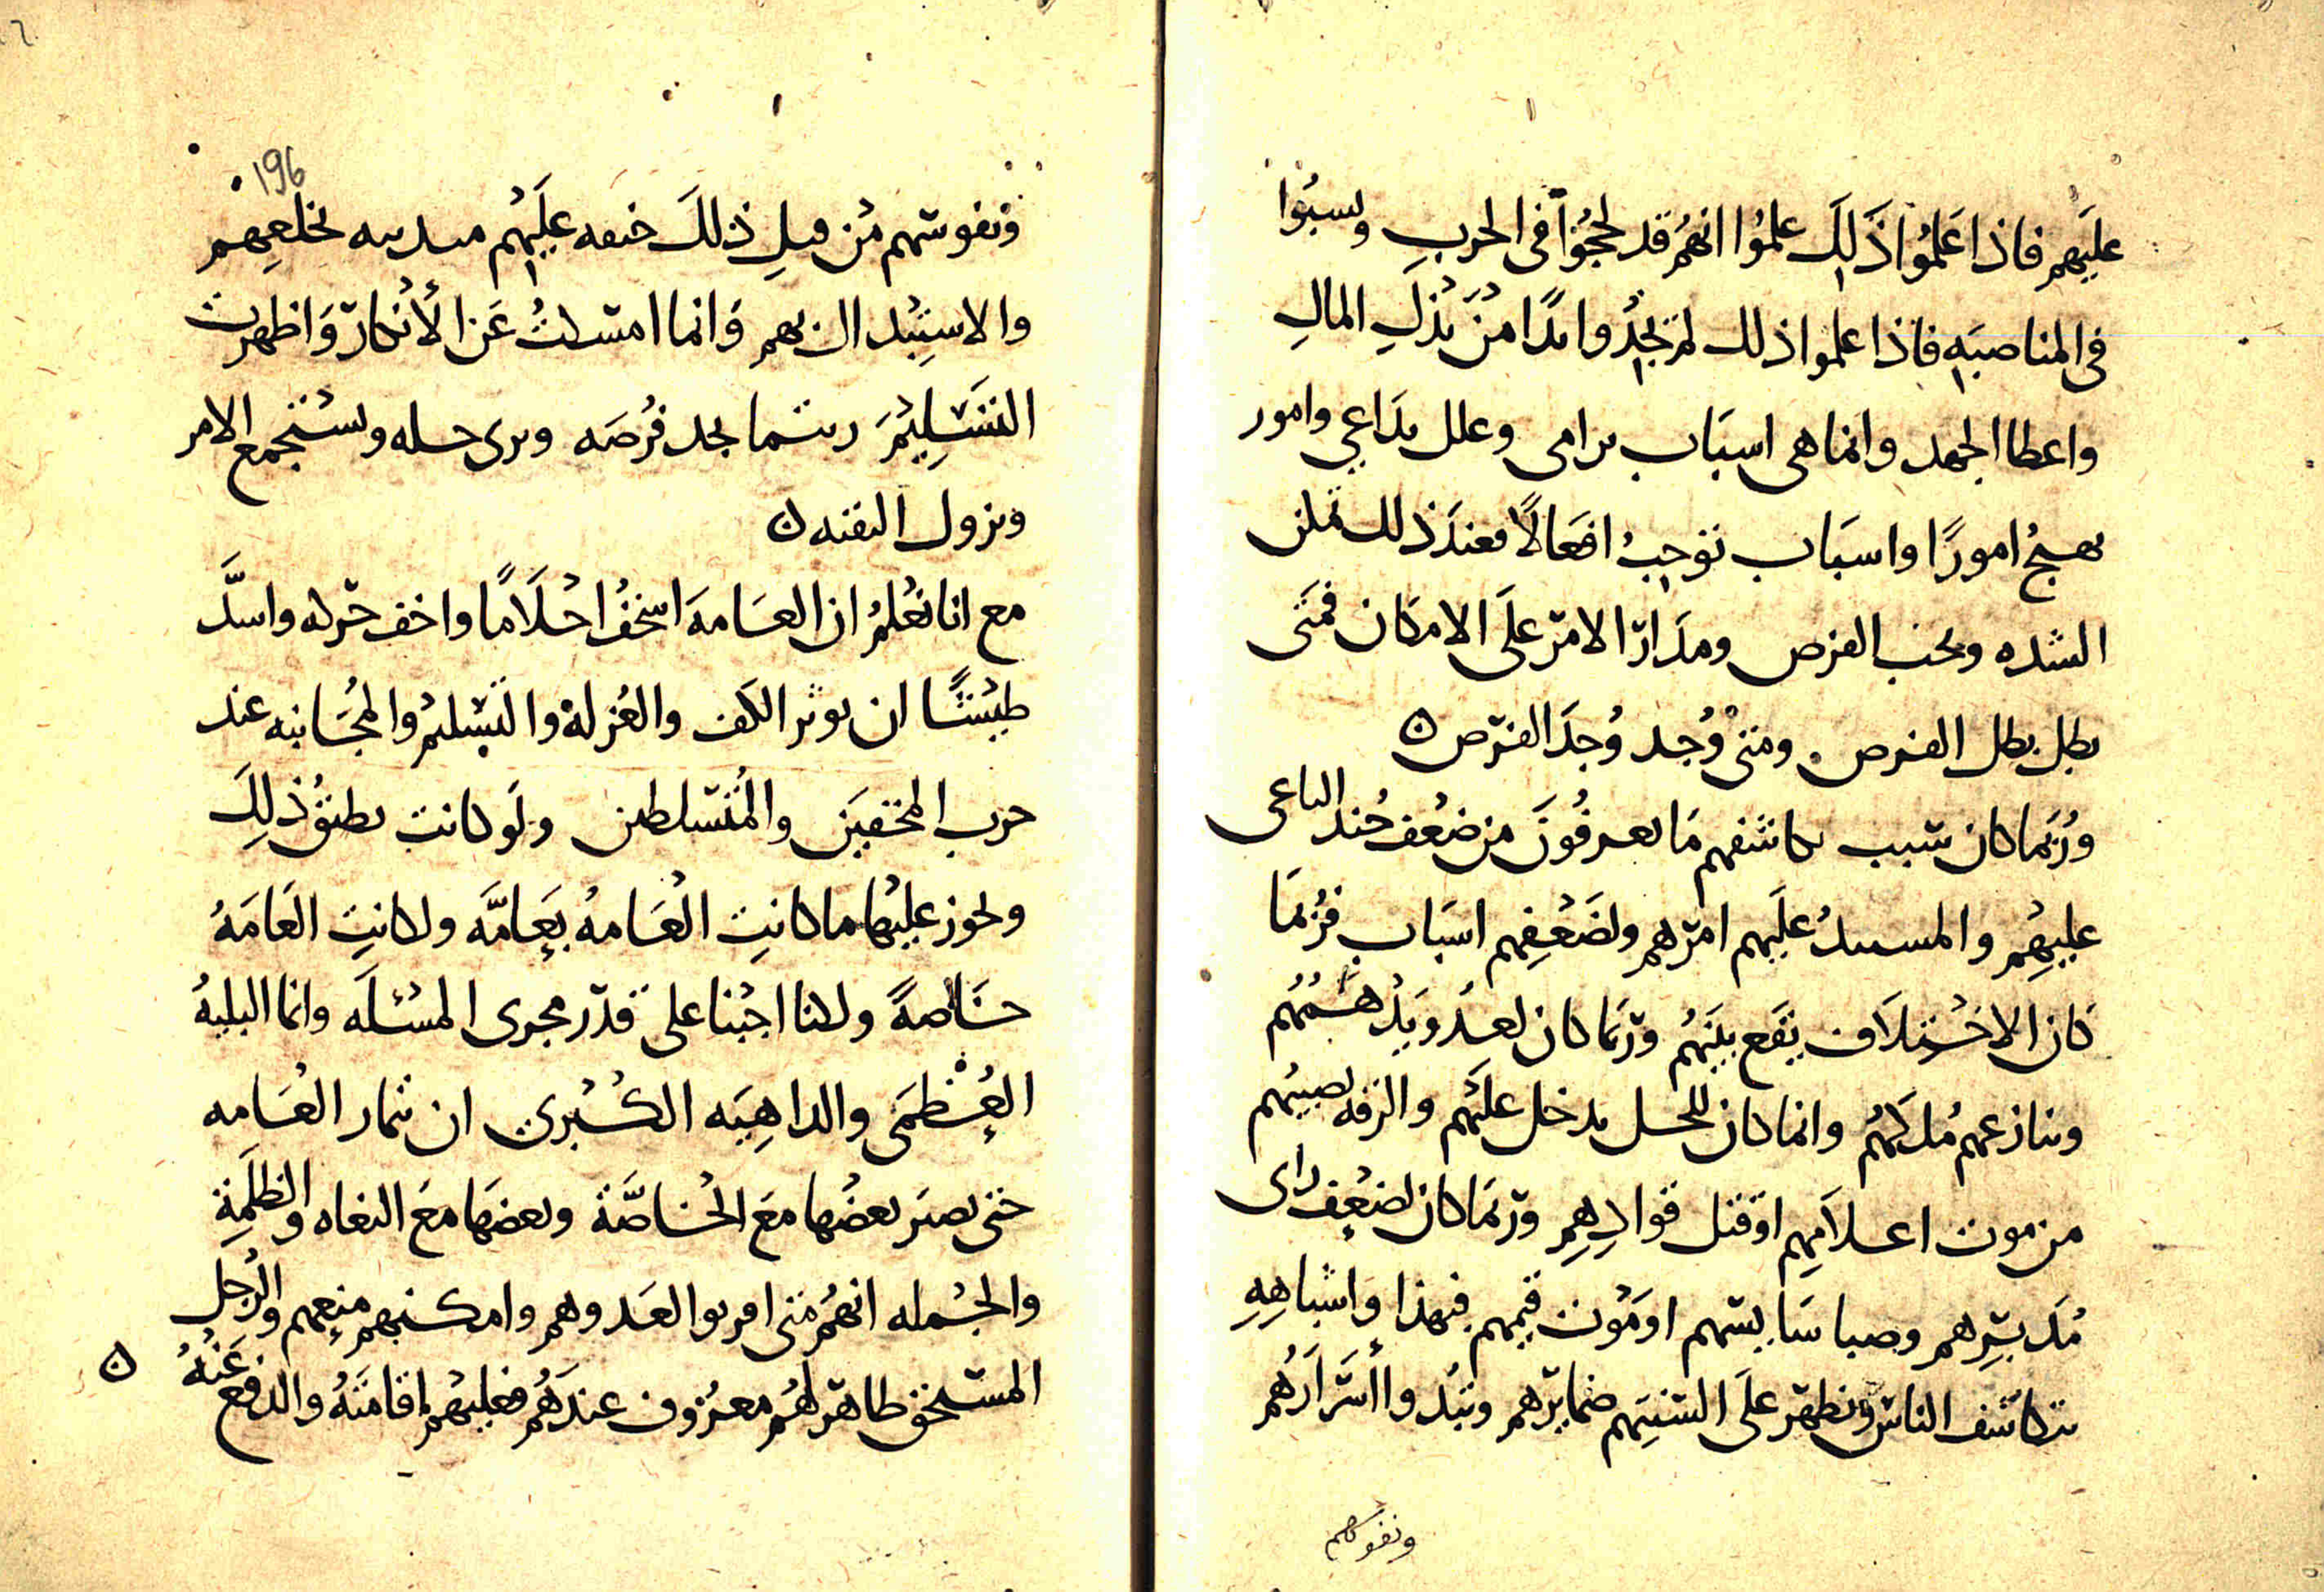 عليهم فاذا علموا ذلك علموا انهم قد لحجوا في الحرب ونسبوا
في المناصبه فاذا علموا ذلك لم يجدوا بدا من بذل المال
واعطا الجهد وانما هي اسباب ترامى وعلل تداعي وامور
تهيج امورا واسباب توجب افعالا فعند ذلك تمكن
الشده ويجب الفرص ومدار الامر على الامكان فمتى
بطل بطل الفرص ومتى وجد وجد الفرص ٥
وربما كان سبب تكاشفهم ما يعرفون من ضعف جند الباغى
عليهم والمستبد عليهم امرهم ولضعفهم اسباب فربما
كان الاختلاف يقع بينهم وربما كان لعدو يدهمهم
وينازعهم ملكهم وانما كان للخلل يدخل عليهم والرقه تصيبهم
من موت اعلامهم او قتل قوادهم وربما كان لضعف راى
مدبرهم وصبا سايسهم او موت قيمهم فبهذا واشباهه
تتكاشف الناس وتظهر على السنتهم ضمايرهم وتبدوا اسرارهم
ونفوسهم
196
ونفوسهم من قبل ذلك عليهم بخلعهم
والاستبدال بهم وانما امسكت عن الانكار واظهرت
التسليم ريثما يجد فرصه ويرى خلله ويستجمع الامر
ويزول التقيه ٥
مع انا نعلم ان العامه اسخف احلاما واخف حركه واشد
طيشا ان يوثر الكف والعزلة والتسليم والمجانبه عند
حرب المحقين والمتسلطين ولو كانت تطيق ذلك
ويجوز عليها ما كانت العامه بعامه ولكانت العامه
خاصة ولكنا اجبنا على قدر مجرى المسئله وانما البليه
العظمى والداهيه الكبرى ان ثمار العامه
حتى يصير بعضها مع الخاصة وبعضها مع البغاه والظلمة
والجمله انهم متى اقربوا العدوهم وامكنهم منعهم والرجل
المستحق ظاهر لهم معروف عندهم فعليهم اقامته والدفع عنه ٥